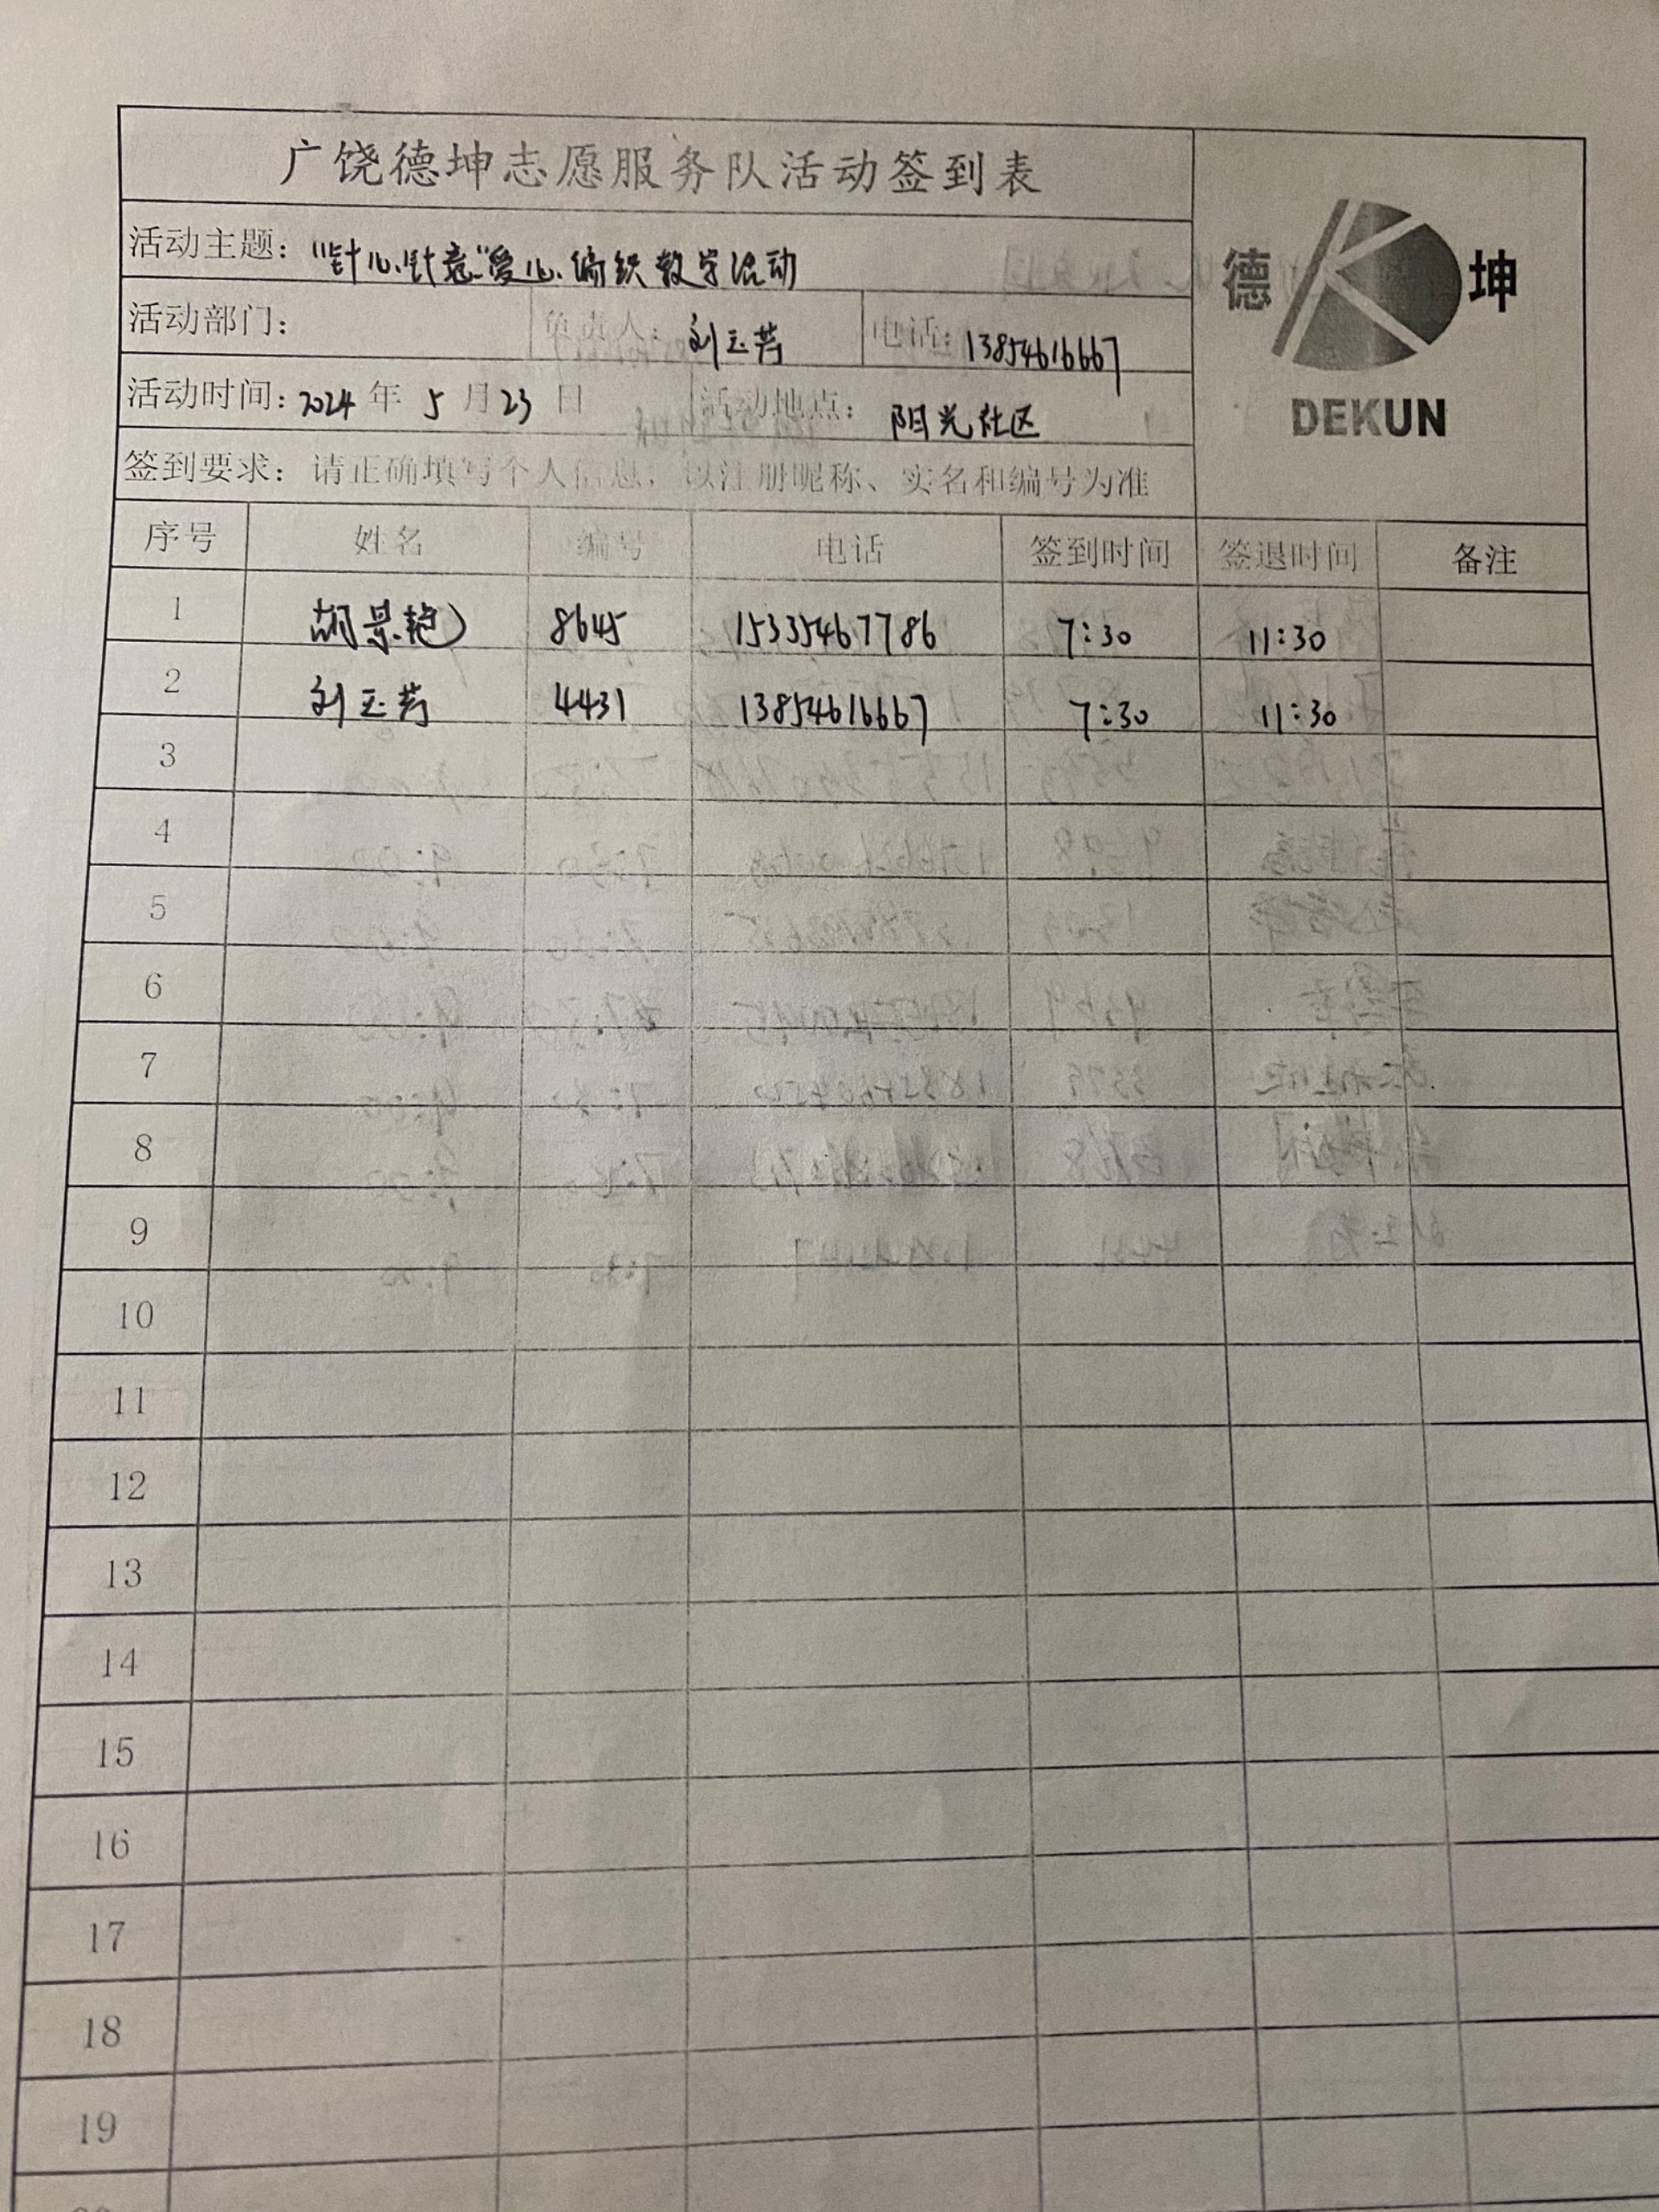 广饶德坤志愿服务队活动签到表
德 坤
DEKUN
活动主题："针心针意"爱心编织教学活动
活动部门： 负责人：刘玉芳 电话：13854616667
活动时间：2024 年 5 月 23 日 活动地点：阳光社区
签到要求：请正确填写个人信息，以注册昵称、实名和编号为准
序号 姓名 编号 电话 签到时间 签退时间 备注
1 胡景艳 8645 15335467786 7:30 11:30
2 刘玉芳 4431 13854616667 7:30 11:30
3
4
5
6
7
8
9
10
11
12
13
14
15
16
17
18
19